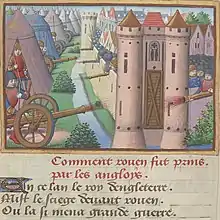 Comment rouen fut prins.
par les angloys
En ce lan le roy dengleterre.
Mist le siege deuant rouen.
Ou la si mena grande guerre.